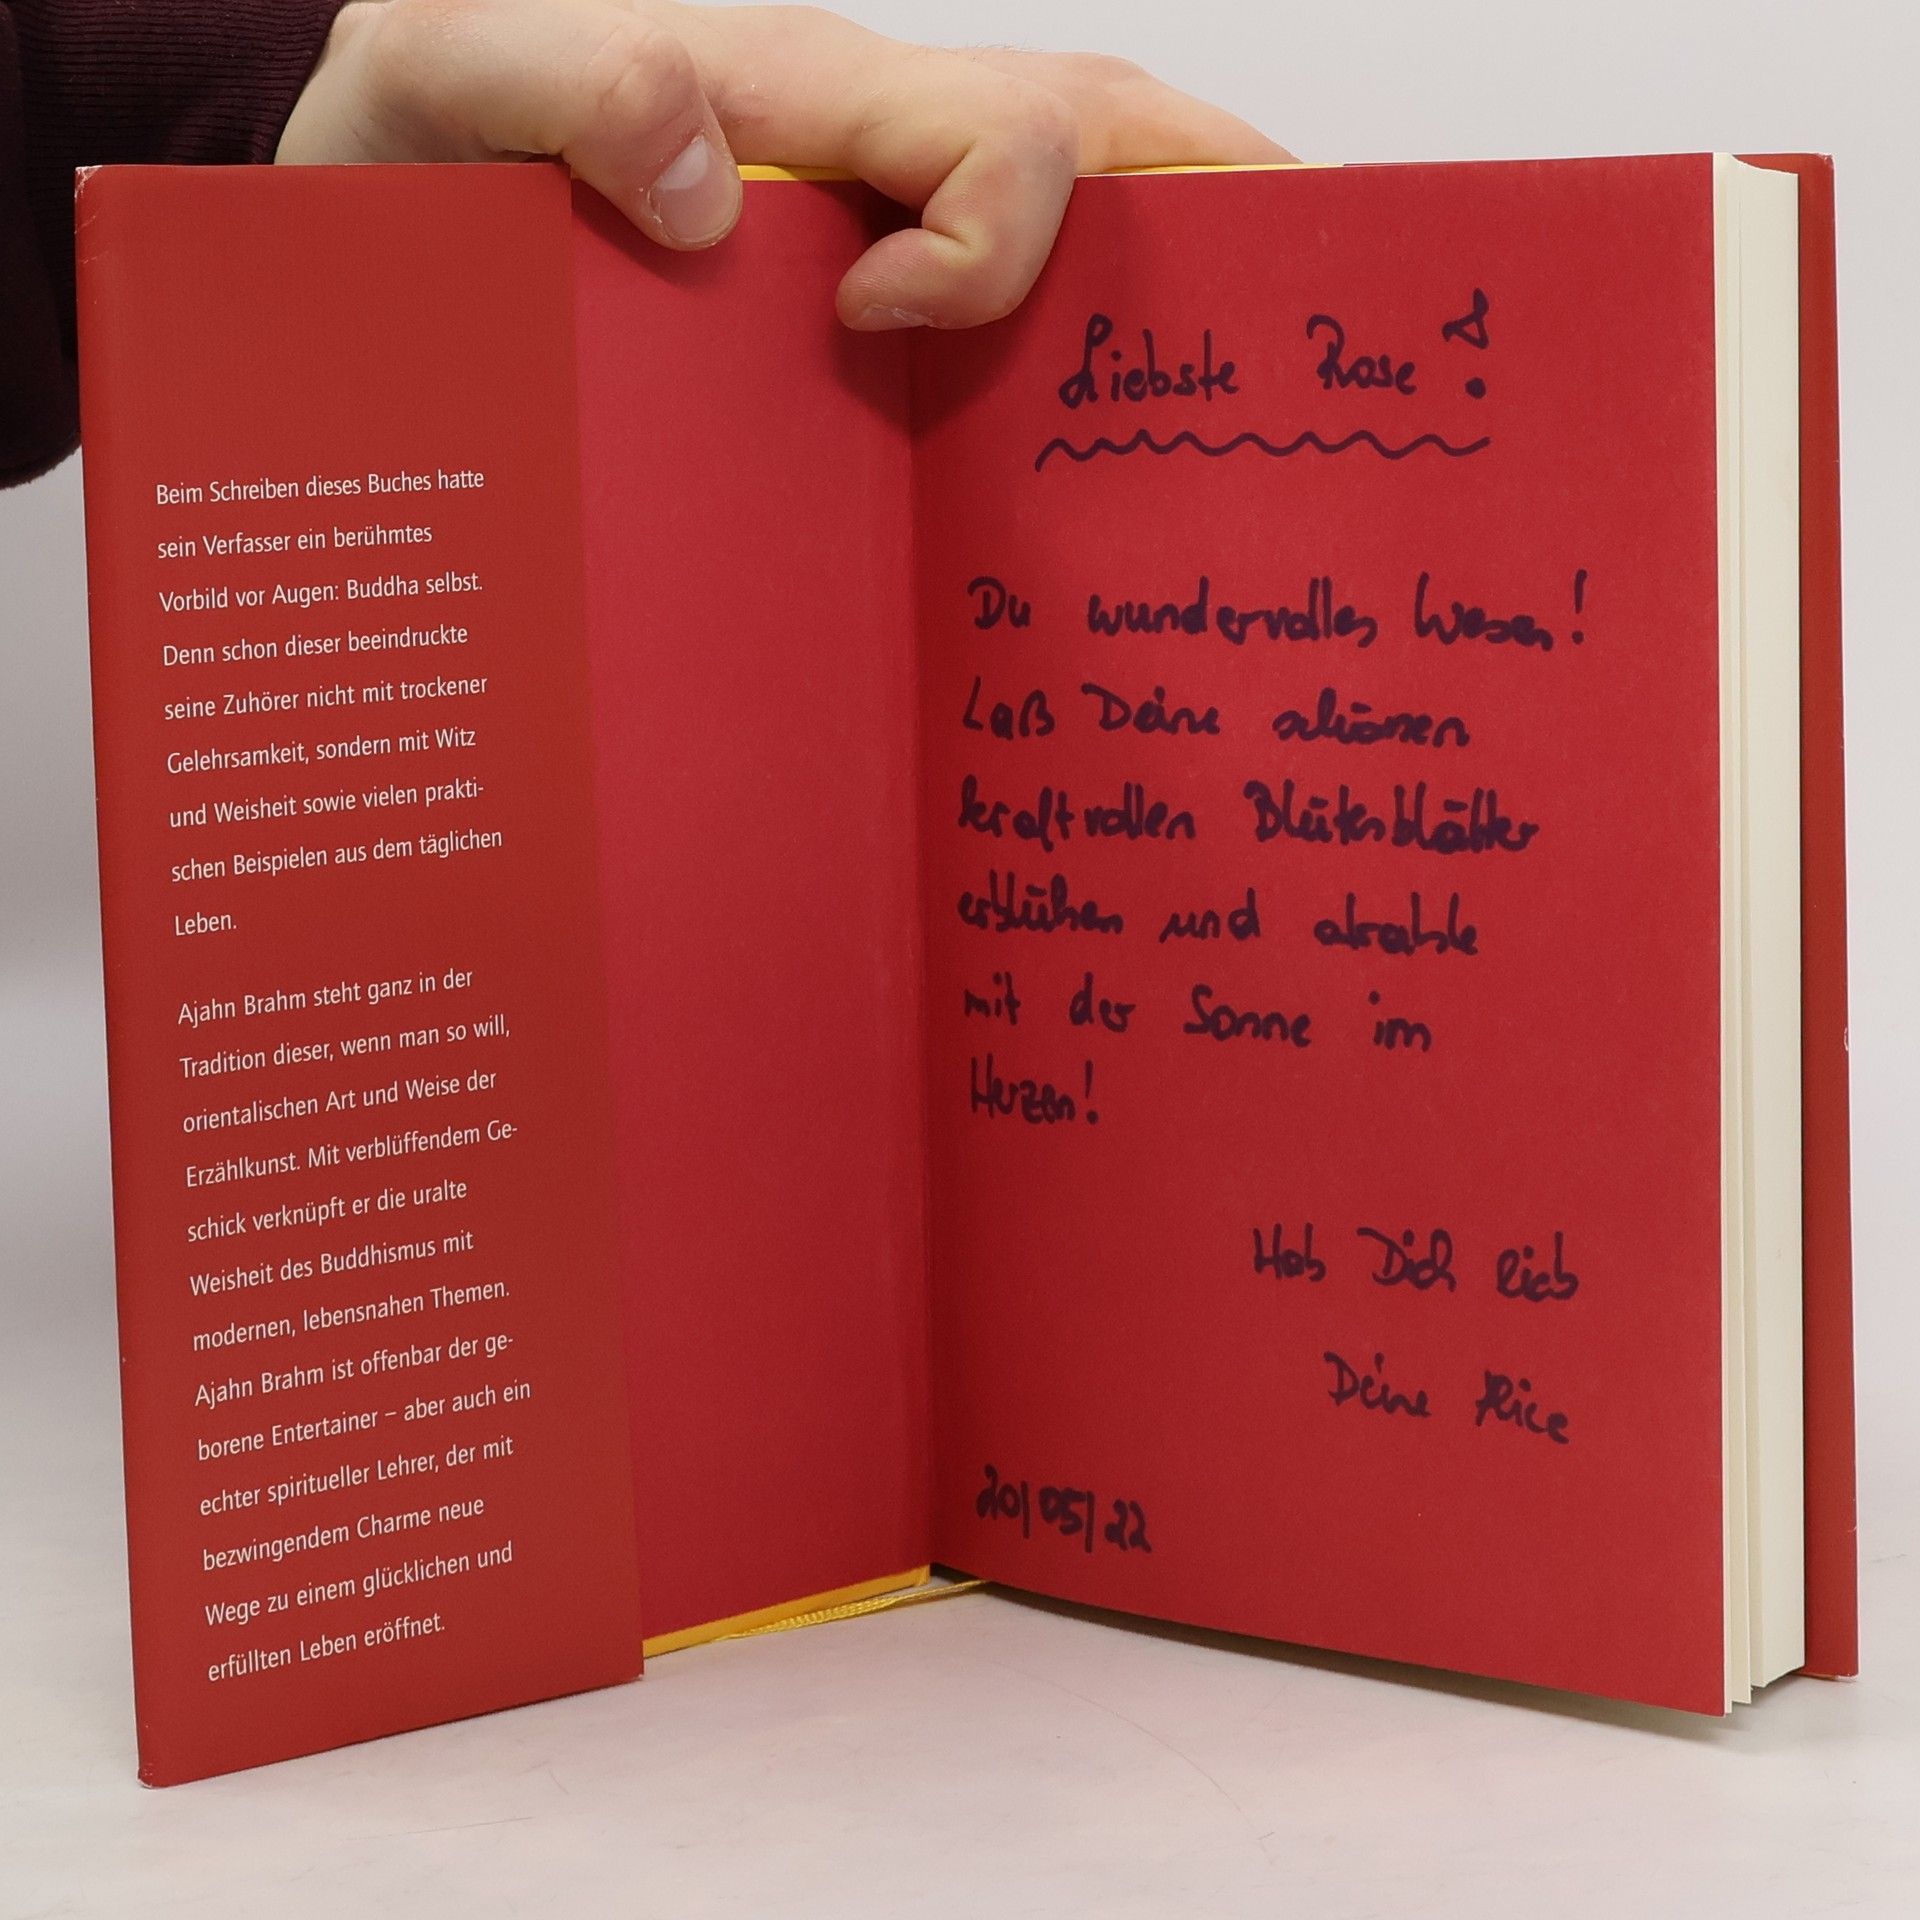 Beim Schreiben dieses Buches hatte
sein Verfasser ein berühmtes
Vorbild vor Augen: Buddha selbst.
Denn schon dieser beeindruckte
seine Zuhörer nicht mit trockener
Gelehrsamkeit, sondern mit Witz
und Weisheit sowie vielen prakti-
schen Beispielen aus dem täglichen
Leben.
Ajahn Brahm steht ganz in der
Tradition dieser, wenn man so will,
orientalischen Art und Weise der
Erzählkunst. Mit verblüffendem Ge-
schick verknüpft er die uralte
Weisheit des Buddhismus mit
modernen, lebensnahen Themen.
Ajahn Brahm ist offenbar der ge-
borene Entertainer – aber auch ein
echter spiritueller Lehrer, der mit
bezwingendem Charme neue
Wege zu einem glücklichen und
erfüllten Leben eröffnet.
Liebste Rose!
Du wundervolles Wesen!
Laß Deine schönen
kraftvollen Blütenblätter
erblühen und strahle
mit der Sonne im
Herzen!
Hab Dich lieb
Deine
20/05/22